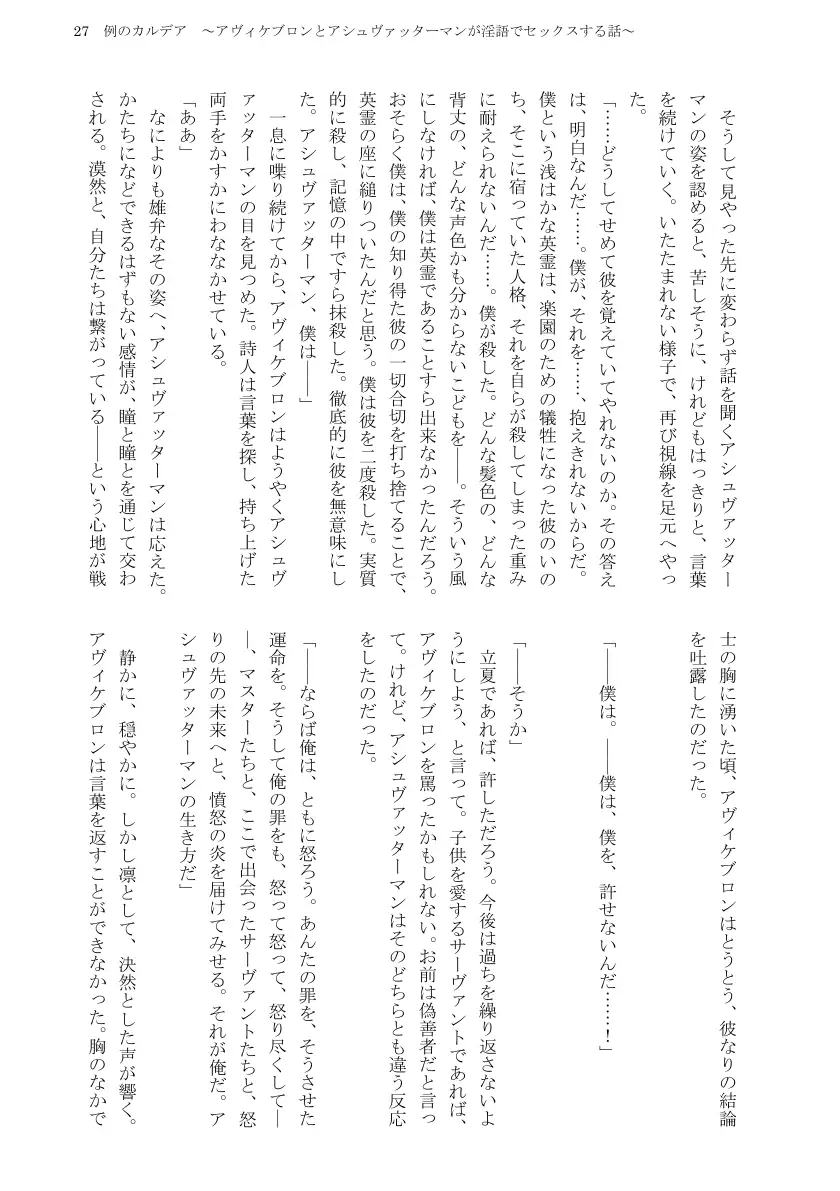 27　例のカルデア　～アヴィケブロンとアシュヴァッターマンが淫語でセックスする話～
　そうして見やった先に変わらず話を聞くアシュヴァッター
マンの姿を認めると、苦しそうに、けれどもはっきりと、言葉
を続けていく。いたたまれない様子で、再び視線を足元へやっ
た。
「……どうしてせめて彼を覚えていてやれないのか。その答え
は、明白なんだ……。僕が、それを……、抱えきれないからだ。
僕という浅はかな英霊は、楽園のための犠牲になった彼のいの
ち、そこに宿っていた人格、それを自らが殺してしまった重み
に耐えられないんだ……。僕が殺した。どんな髪色の、どんな
背丈の、どんな声色かも分からないこどもを――。そういう風
にしなければ、僕は英霊であることすら出来なかったんだろう。
おそらく僕は、僕の知り得た彼の一切合切を打ち捨てることで、
英霊の座に縋りついたんだと思う。僕は彼を二度殺した。実質
的に殺し、記憶の中ですら抹殺した。徹底的に彼を無意味にし
た。アシュヴァッターマン、僕は――」
　一息に喋り続けてから、アヴィケブロンはようやくアシュヴ
ァッターマンの目を見つめた。詩人は言葉を探し、持ち上げた
両手をかすかにわななかせている。
「ああ」
　なによりも雄弁なその姿へ、アシュヴァッターマンは応えた。
かたちになどできるはずもない感情が、瞳と瞳とを通じて交わ
される。漠然と、自分たちは繋がっている――という心地が戦
士の胸に湧いた頃、アヴィケブロンはとうとう、彼なりの結論
を吐露したのだった。
「――僕は。――僕は、僕を、許せないんだ……！」
「――そうか」
　立夏であれば、許しただろう。今後は過ちを繰り返さないよ
うにしよう、と言って。子供を愛するサーヴァントであれば、
アヴィケブロンを罵ったかもしれない。お前は偽善者だと言っ
て。けれど、アシュヴァッターマンはそのどちらとも違う反応
をしたのだった。
「――ならば俺は、ともに怒ろう。あんたの罪を、そうさせた
運命を。そうして俺の罪をも、怒って怒って、怒り尽くして―
―、マスターたちと、ここで出会ったサーヴァントたちと、怒
りの先の未来へと、憤怒の炎を届けてみせる。それが俺だ。ア
シュヴァッターマンの生き方だ」
　静かに、穏やかに。しかし凛として、決然とした声が響く。
アヴィケブロンは言葉を返すことができなかった。胸のなかで